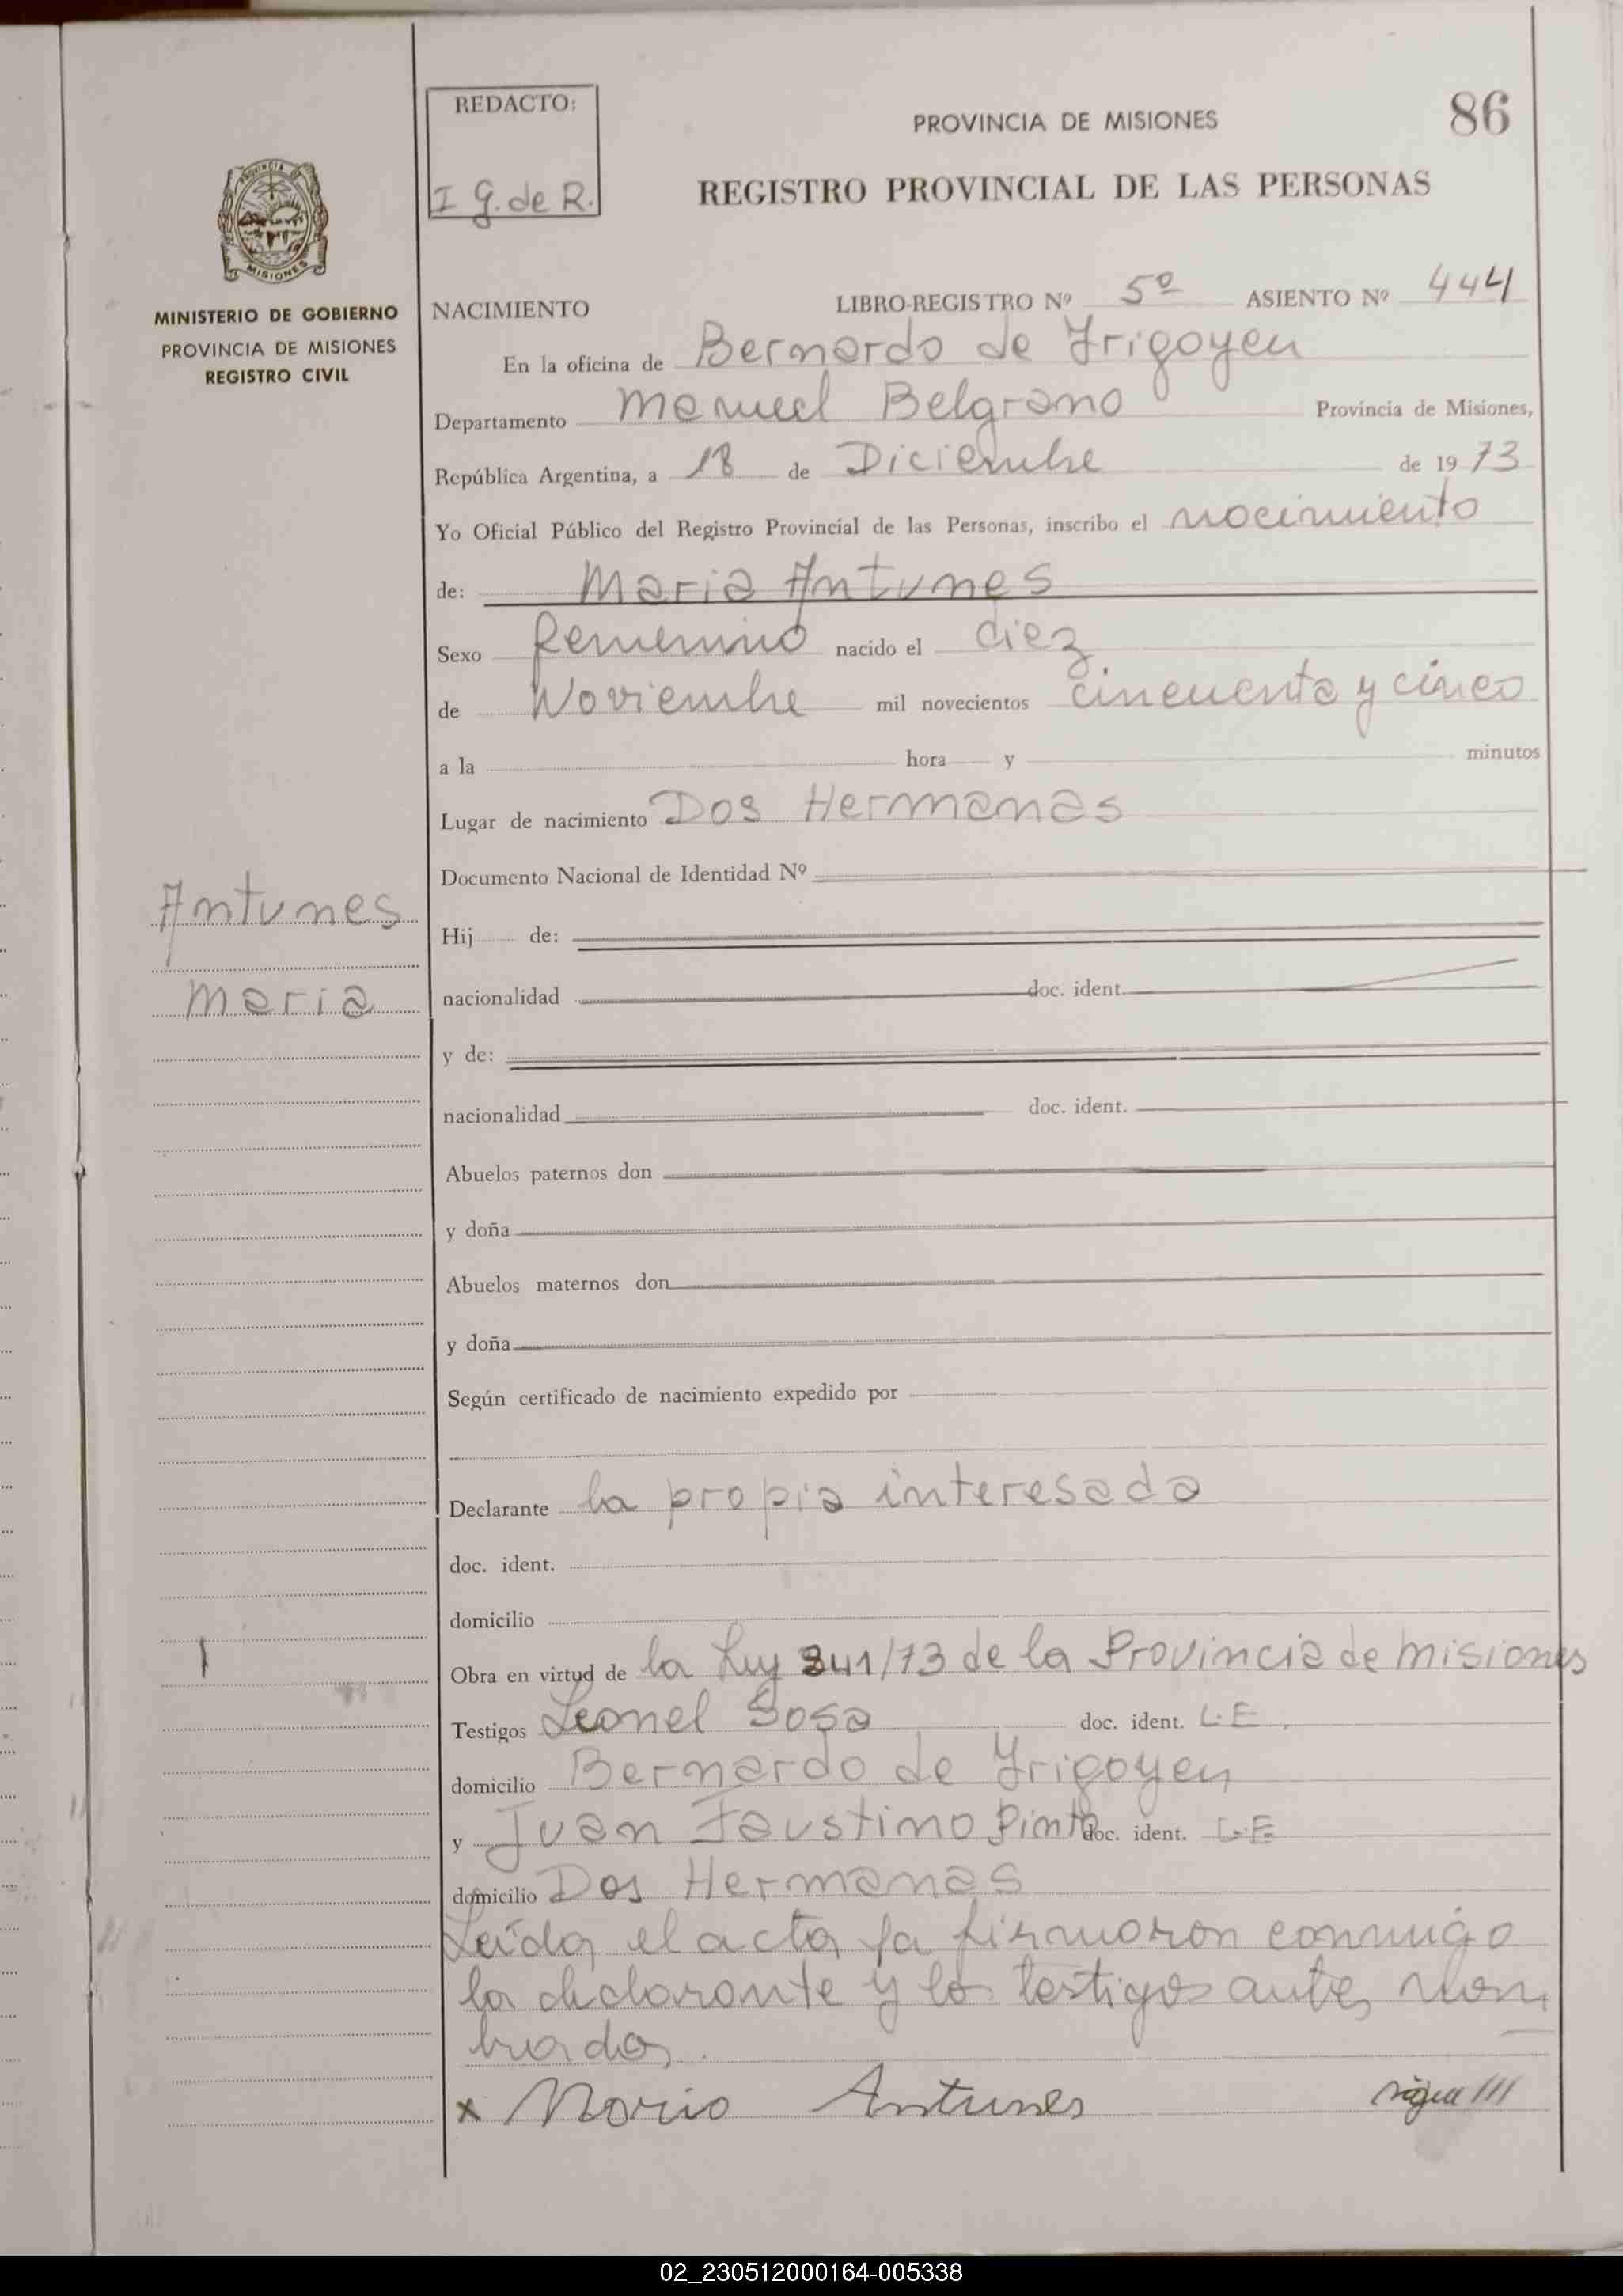 REDACTO:
I G. de R.
PROVINCIA DE MISIONES
86
REGISTRO PROVINCIAL DE LAS PERSONAS
PROVINCIA
MISIONES
MINISTERIO DE GOBIERNO
PROVINCIA DE MISIONES
REGISTRO CIVIL
NACIMIENTO LIBRO-REGISTRO Nº 5º ASIENTO Nº 444
En la oficina de Bernardo de Yrigoyen
Departamento Manuel Belgrano Provincia de Misiones,
República Argentina, a 18 de Diciembre de 1973
Yo Oficial Público del Registro Provincial de las Personas, inscribo el nacimiento
de: Maria Antunes
Sexo femenino nacido el diez
de Noviembre mil novecientos cincuenta y cinco
a la hora y minutos
Lugar de nacimiento Dos Hermanas
Documento Nacional de Identidad Nº
Antunes
Maria
Hij de:
nacionalidad doc. ident.
y de:
nacionalidad doc. ident.
Abuelos paternos don
y doña
Abuelos maternos don
y doña
Según certificado de nacimiento expedido por
Declarante la propia interesada
doc. ident.
domicilio
Obra en virtud de la Ley 341/73 de la Provincia de Misiones
Testigos Leonel Sosa doc. ident. L.E.
domicilio Bernardo de Yrigoyen
y Juan Faustino Pinto doc. ident. L.E
domicilio Dos Hermanas
Leída el acta la firmaron conmigo
la declarante y los testigos antes nom
brados.
x Maria Antunes sigue ///
02_230512000164-005338